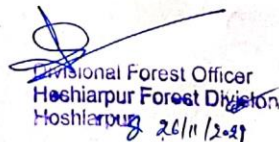 Divisional Forest Officer
Hoshiarpur Forest Division
Hoshiarpur
26/11/2021